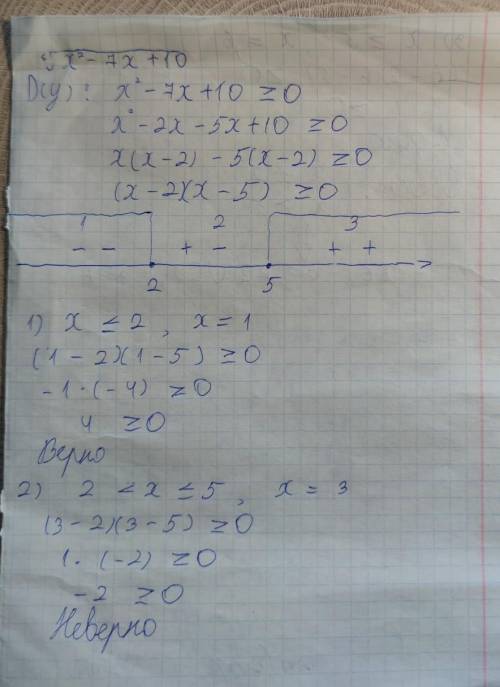 √x²-7x+10
D(y): x²-7x+10 ≥0
x²-2x-5x+10 ≥0
x(x-2)-5(x-2) ≥0
(x-2)(x-5) ≥0
1 2 3
- - + - + +
2 5
1) x ≤ 2, x=1
(1-2)(1-5) ≥0
-1·(-4) ≥0
4 ≥0
Верно
2) 2 < x ≤ 5, x = 3
(3-2)(3-5) ≥0
1·(-2) ≥0
-2 ≥0
Неверно